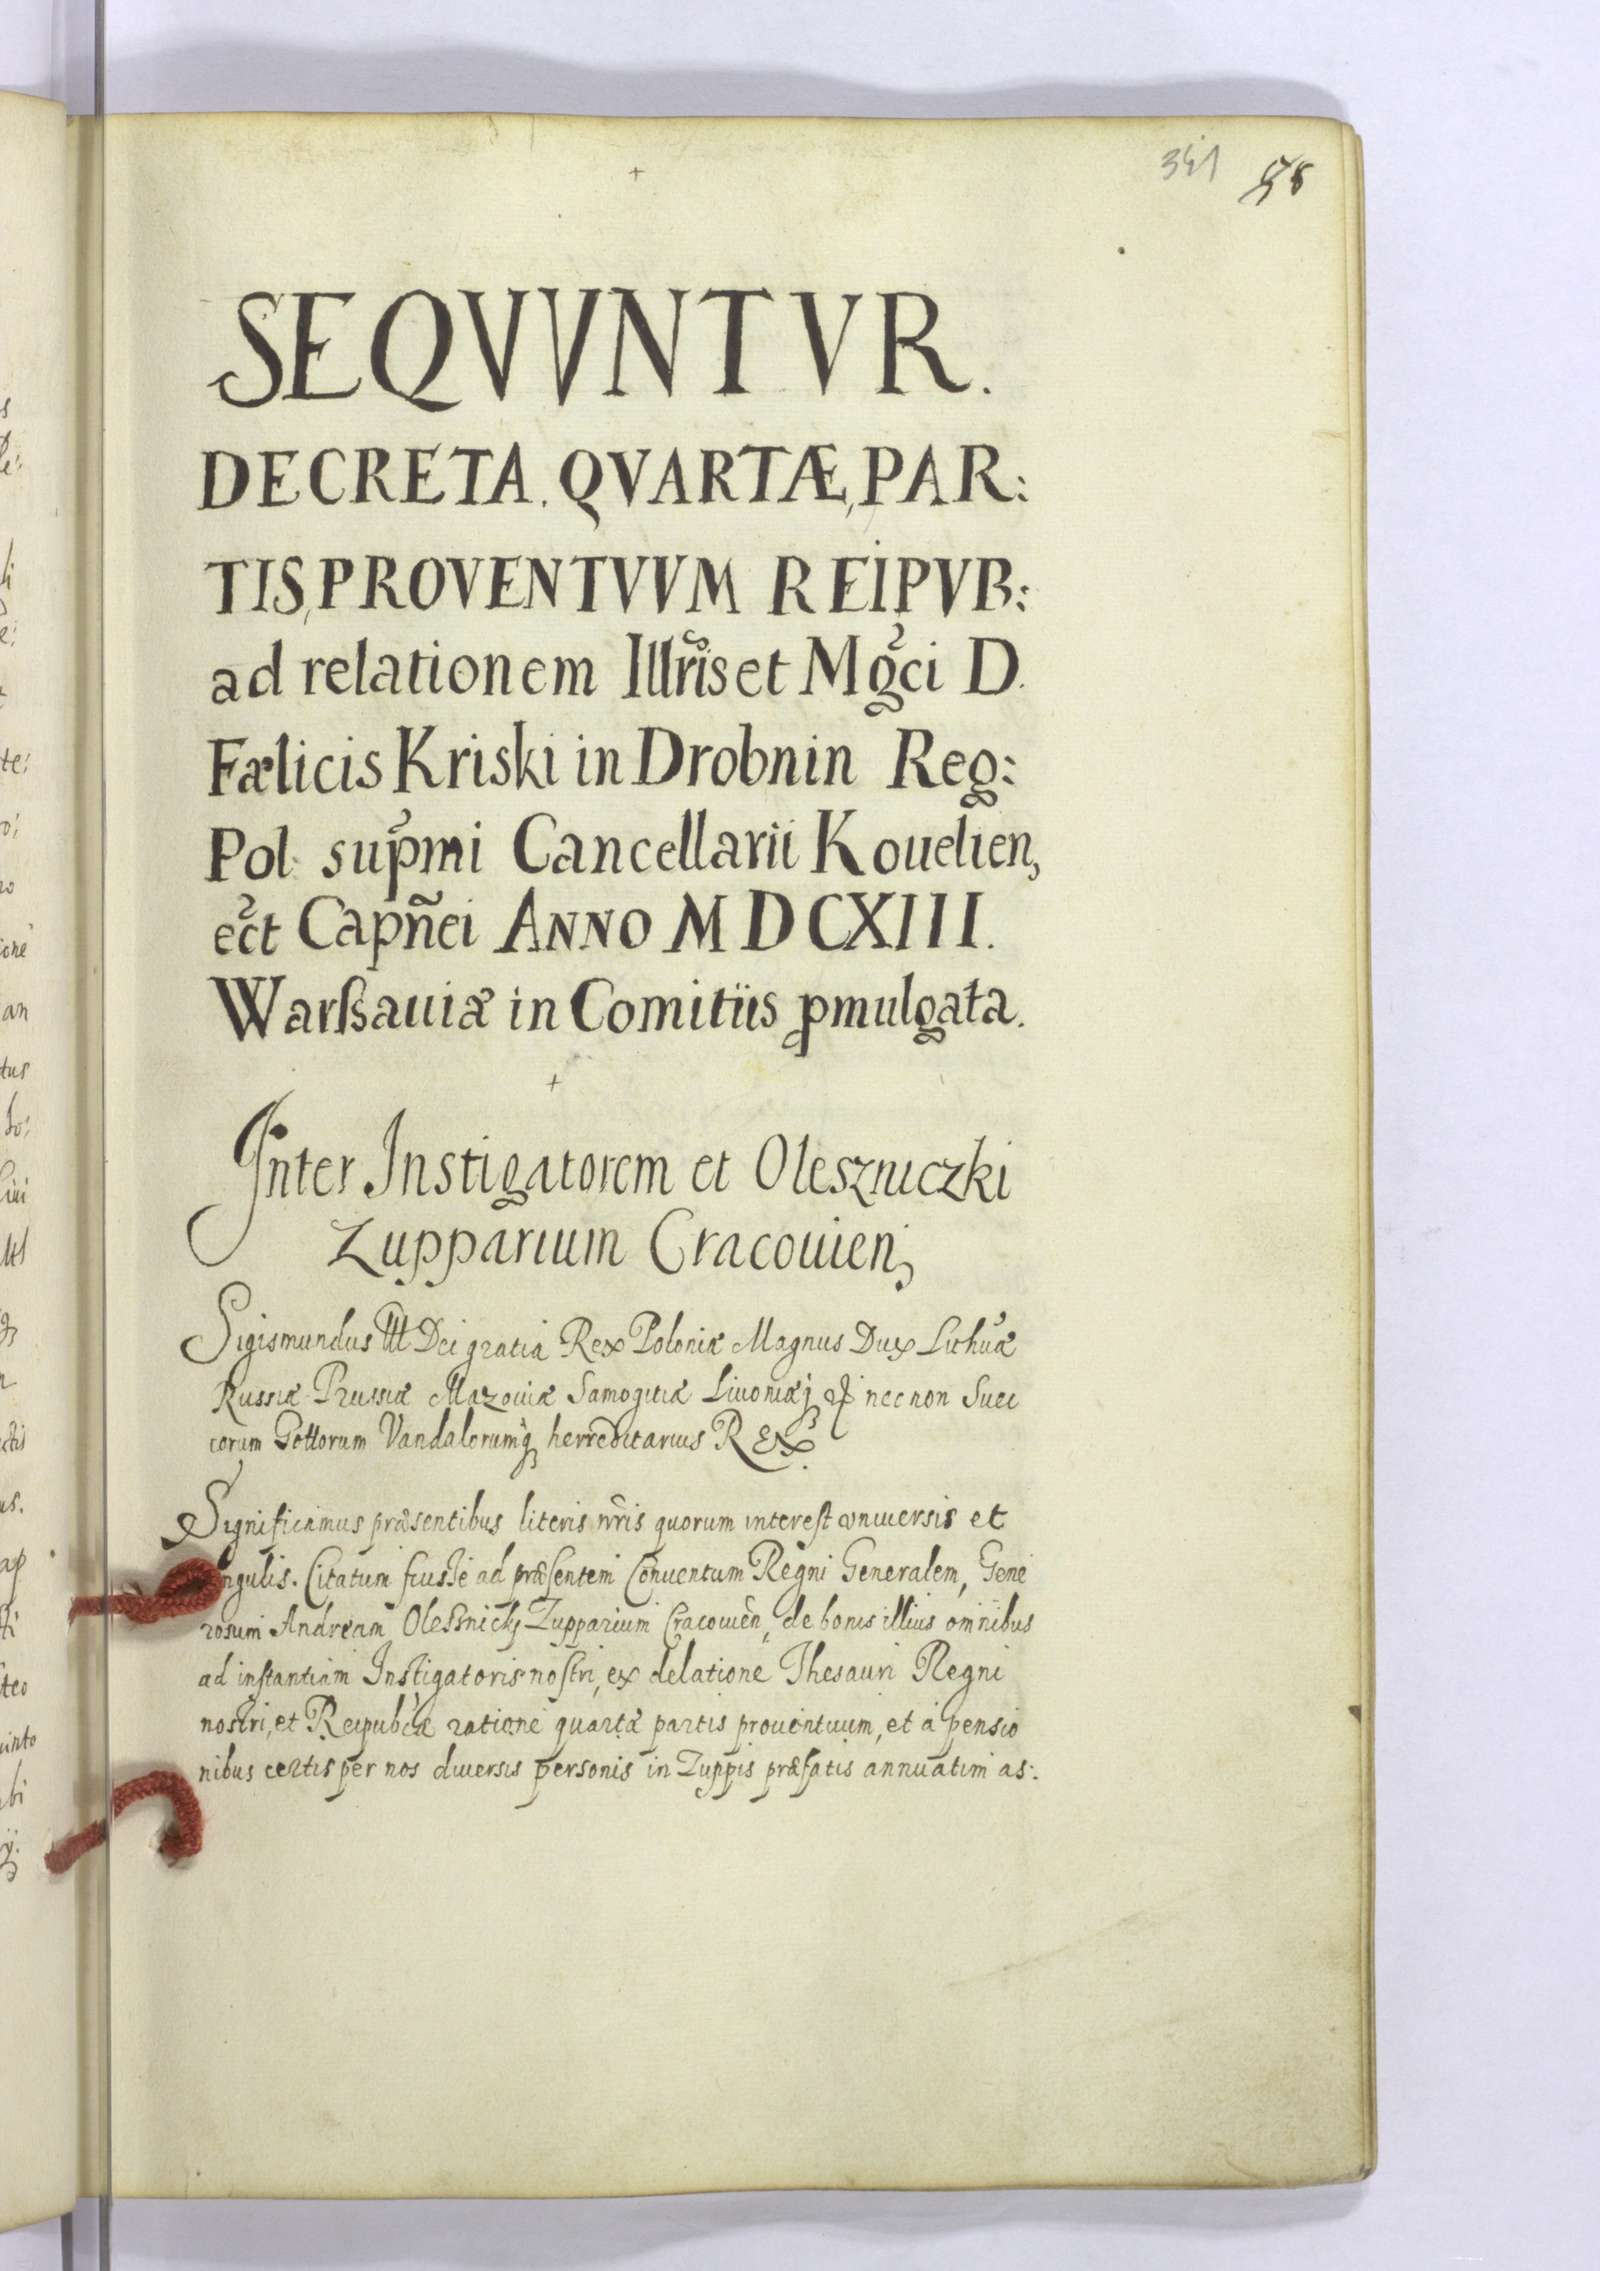 341 58
SEQVVNTVR.
DECRETA. QVARTÆ, PAR:
TIS, PROVENTVVM REIPVB:
ad relationem Illris et Mgci D.
Fælicis Kriski in Drobnin Reg:
Pol: supmi Cancellarii Kouelien,
ect Capñei ANNO MDCXIII.
Warſsauiæ in Comitiis pmulgata.
Inter Instigatorem et Oleszniczki
Zupparium Cracouien,
Sigismundus III Dei gratia Rex Poloniæ Magnus Dux Lithuæ
Russiæ Prussiæ Mazouiæ Samogitiæ Liuoniæq nec non Suec
corum Gottorum Vandalorumq herreditarius REX.
Significamus præsentibus literis nris quorum interest vniuersis et
ngulis. Citatum fuisse ad præsentem Conuentum Regni Generalem, Gene
rosum Andream Oleſsnicky Zupparium Cracouien, de bonis illius omnibus
ad instantiam Instigatoris nostri, ex delatione Thesauri Regni
nostri, et Reipubcæ ratione quartæ partis prouentuum, et à pensio
nibus certis per nos diuersis personis in Zuppis præfatis annuatim as: